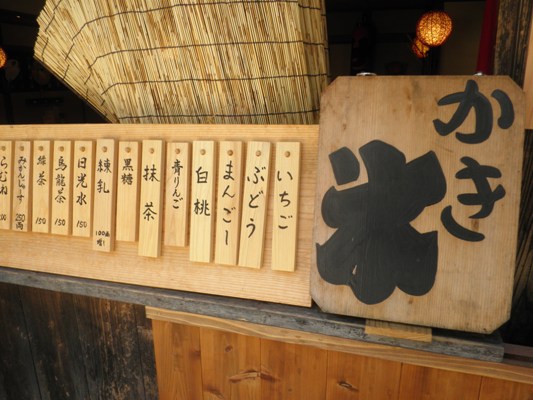 かき
氷
いちご
ぶどう
まんごー
白桃
青りんご
抹茶
黒糖
練乳
100両
増し
日光水
150
烏龍茶
150
緑茶
150
みかんじゅーす
250両
らむね